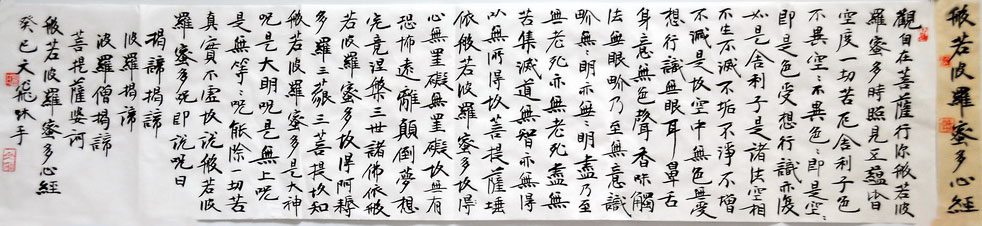 般若波羅蜜多心經
觀自在菩薩行深般若波
羅蜜多時照見五蘊皆
空度一切苦厄舍利子色
不異空:不異色:即是空:
即是色受想行識亦復
如是舍利子是諸法空相
不生不滅不垢不淨不增
不減是故空中無色無受
想行識無眼耳鼻舌
身意無色聲香味觸
法無眼界乃至無意識
界無:明亦無:明盡乃至
無老死亦無老死盡無
苦集滅道無智亦無得
以無所得故菩提薩埵
依般若波羅蜜多故
心無罣礙無罣礙故無有
恐怖遠離顛倒夢想
究竟涅槃三世諸佛依般
若波羅蜜多故得阿耨
多羅三藐三菩提故知
般若波羅蜜多是大神
咒是大明咒是無上咒
是無等:咒能除一切苦
真實不虛故說般若波
羅蜜多咒即說咒曰
揭諦揭諦
波羅揭諦
波羅僧揭諦
菩提薩婆訶
般若波羅蜜多心經
癸巳文飛沐手